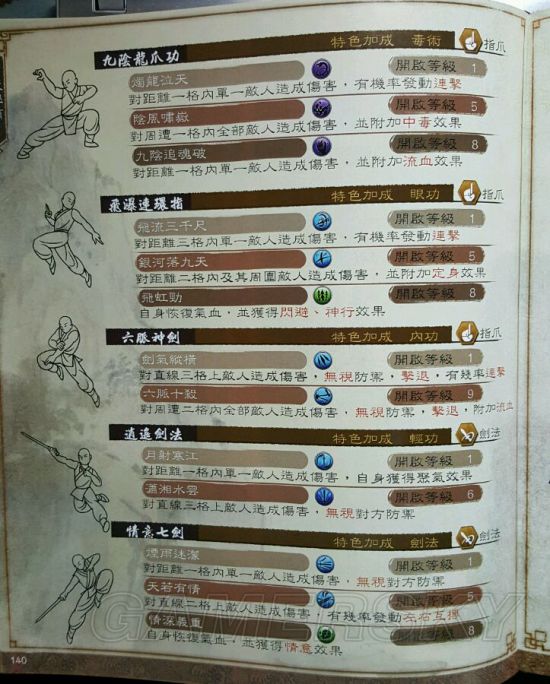 九陰龍爪功 特色加成 毒術 指爪
燭龍泣天 開啟等級 1
對距離一格內單一敵人造成傷害，有機率發動連擊
陰風嘯嶽 開啟等級 5
對周遭一格內全部敵人造成傷害，並附加中毒效果
九陰追魂破 開啟等級 8
對距離一格內單一敵人造成傷害，並附加流血效果
飛瀑連環指 特色加成 眼功 指爪
飛流三千尺 開啟等級 1
對距離三格內單一敵人造成傷害，有機率發動連擊
銀河落九天 開啟等級 5
對距離二格內及其周圍敵人造成傷害，並附加定身效果
飛虹勁 開啟等級 8
自身恢復氣血，並獲得閃避、神行效果
六脈神劍 特色加成 內功 指爪
劍氣縱橫 開啟等級 1
對直線三格上敵人造成傷害，無視防禦，擊退，有幾率連擊
六脈十殺 開啟等級 9
對周遭二格內全部敵人造成傷害，無視防禦，擊退，附加流血
逍遙劍法 特色加成 輕功 劍法
月射寒江 開啟等級 1
對距離一格內單一敵人造成傷害，自身獲得聚氣效果
瀟湘水雲 開啟等級 6
對直線三格上敵人造成傷害，無視對方防禦
情意七劍 特色加成 劍法 劍法
煙雨迷濛 開啟等級 1
對距離一格內單一敵人造成傷害，無視對方防禦
天若有情 開啟等級 5
對直線二格上敵人造成傷害，有幾率發動左右互搏
情深義重 開啟等級 8
自身恢復氣血，並獲得情意效果
GAMERSKY
140